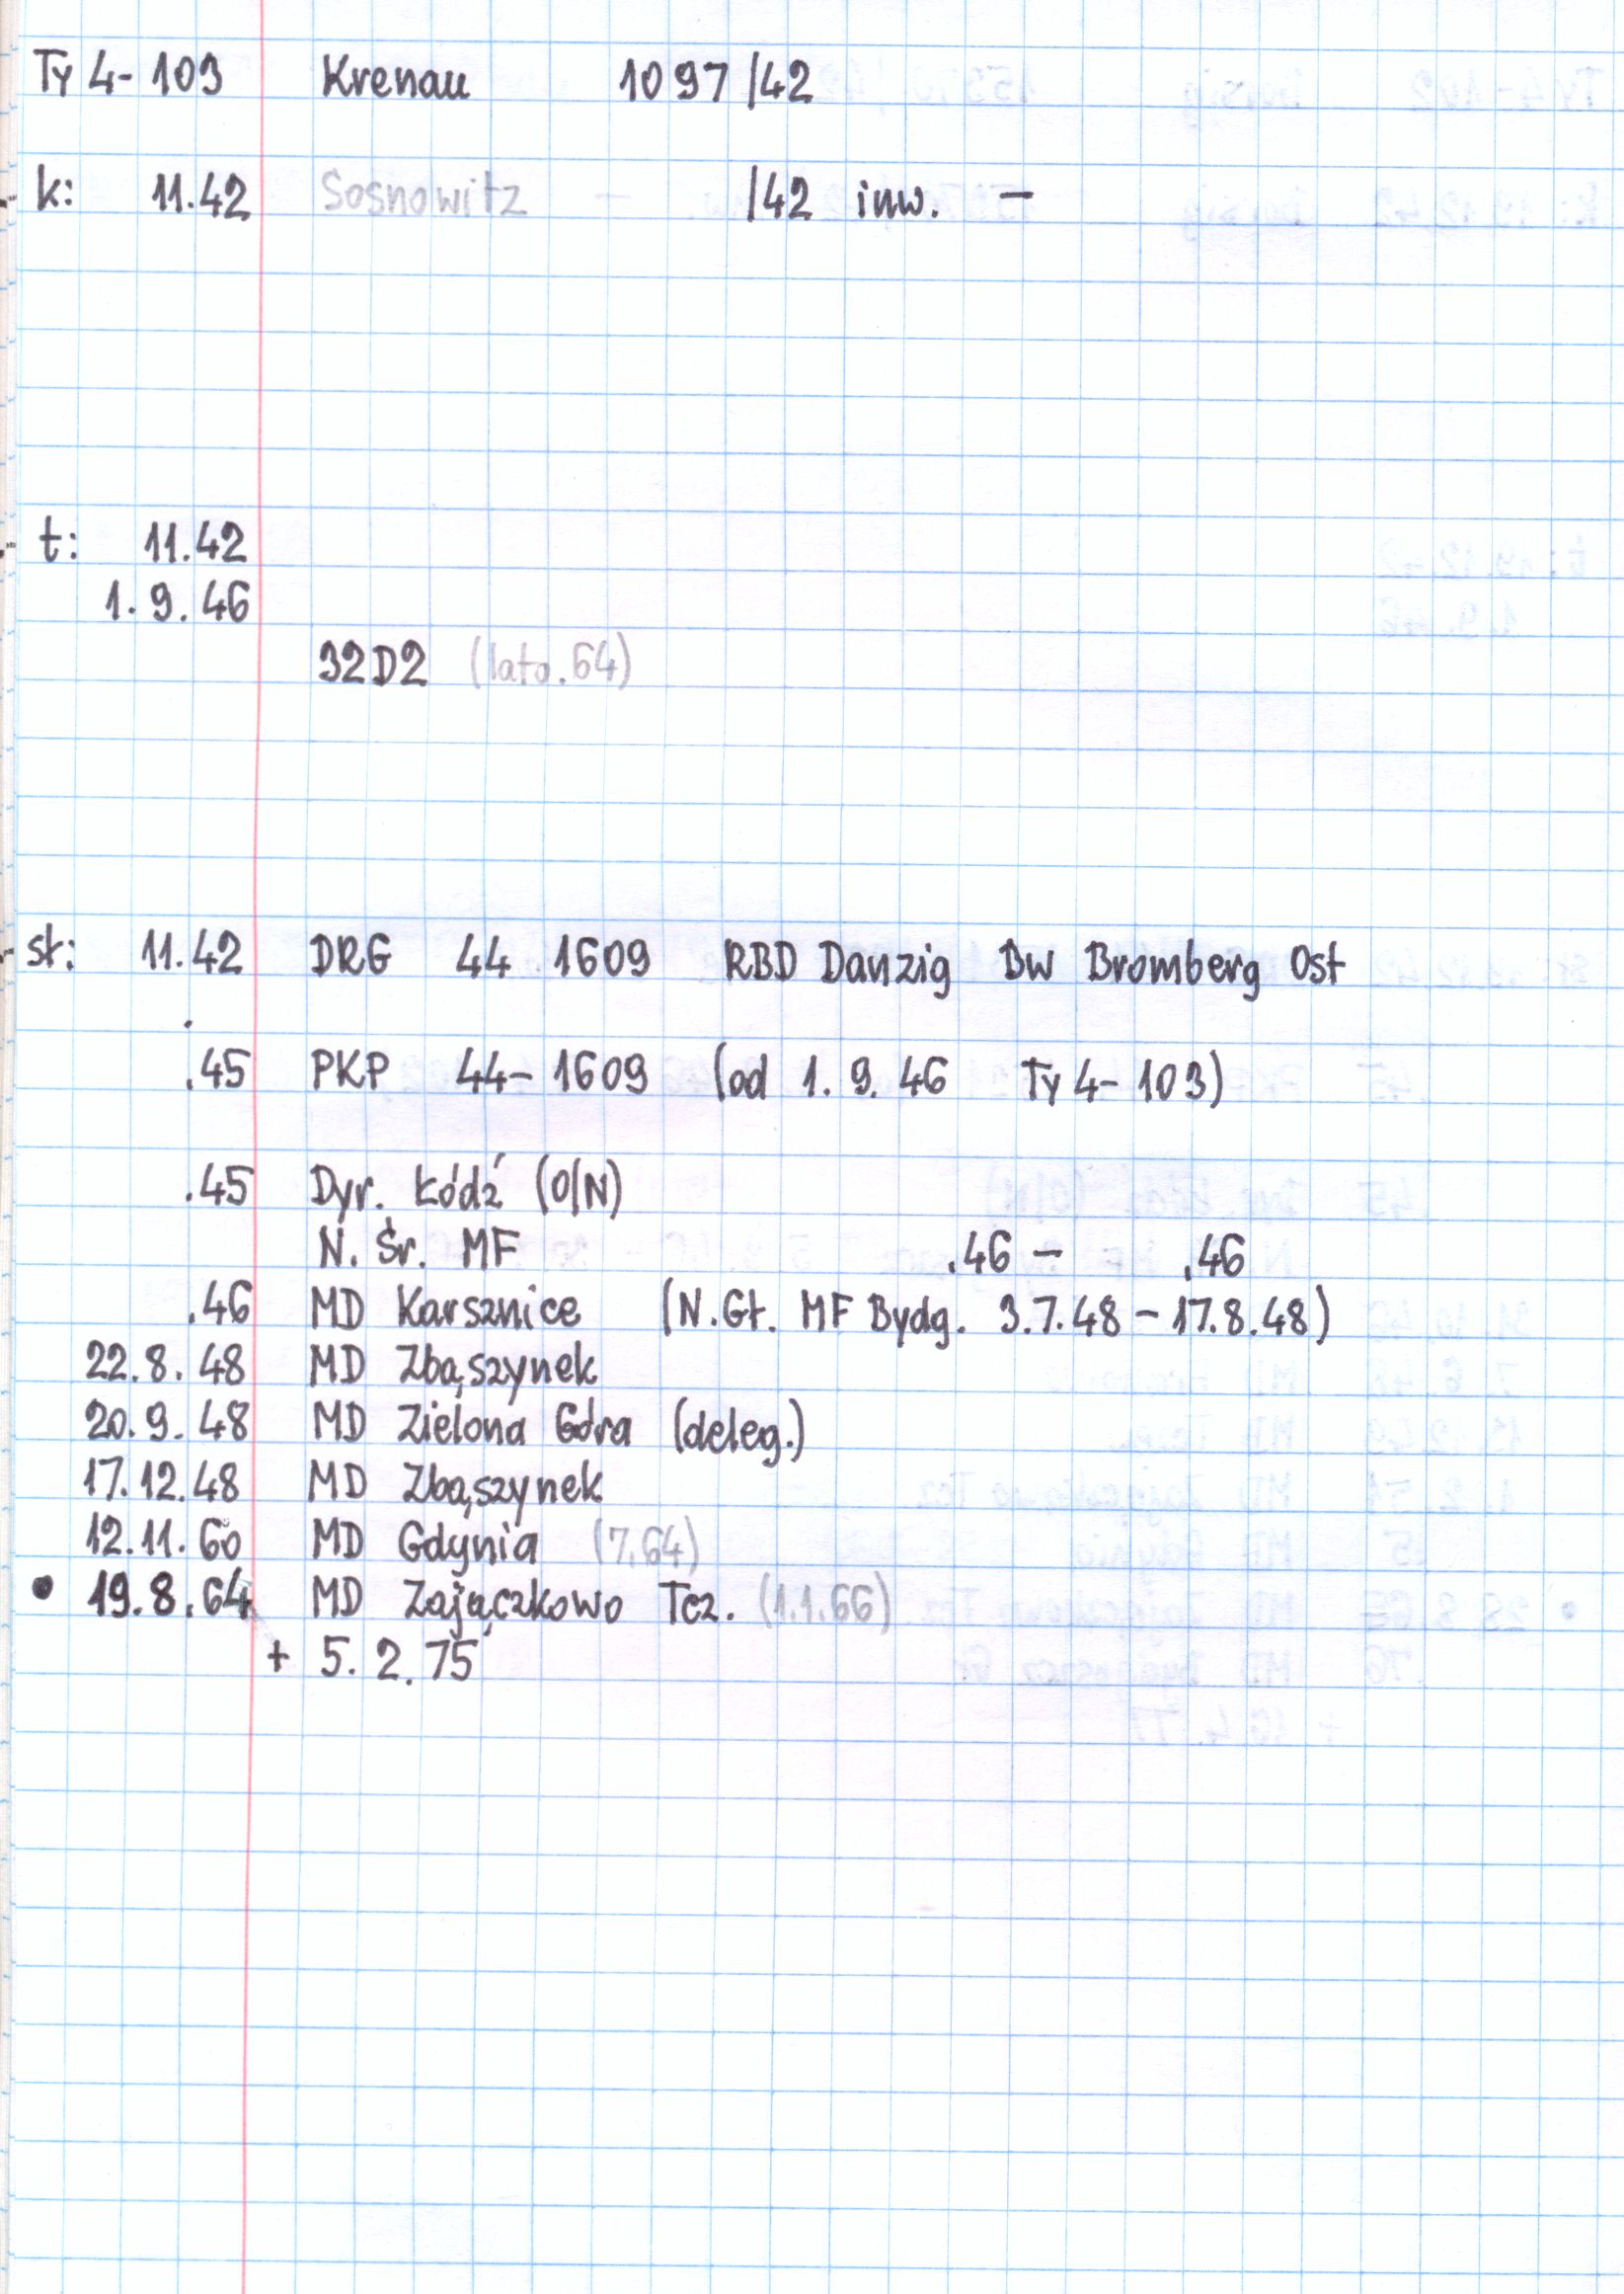 Ty 4-103 Krenau 1097/42
k: 11.42 Sosnowitz /42 inw. –
t: 11.42
1.9.46
32D2 (lato.64)
st: 11.42 DRG 44 1609 RBD Danzig Bw Bromberg Ost
.45 PKP 44-1609 (od 1.9.46 Ty 4-103)
.45 Dyr. Łódź (O/N)
N. Śr. MF .46 – .46
.46 MD Karsznice (N.Gł. MF Bydg. 3.7.48 – 17.8.48)
22.8.48 MD Zbąszynek
20.9.48 MD Zielona Góra (deleg.)
17.12.48 MD Zbąszynek
12.11.60 MD Gdynia (7.64)
• 19.8.64 MD Zajączkowo Tcz. (1.1.66)
+ 5.2.75